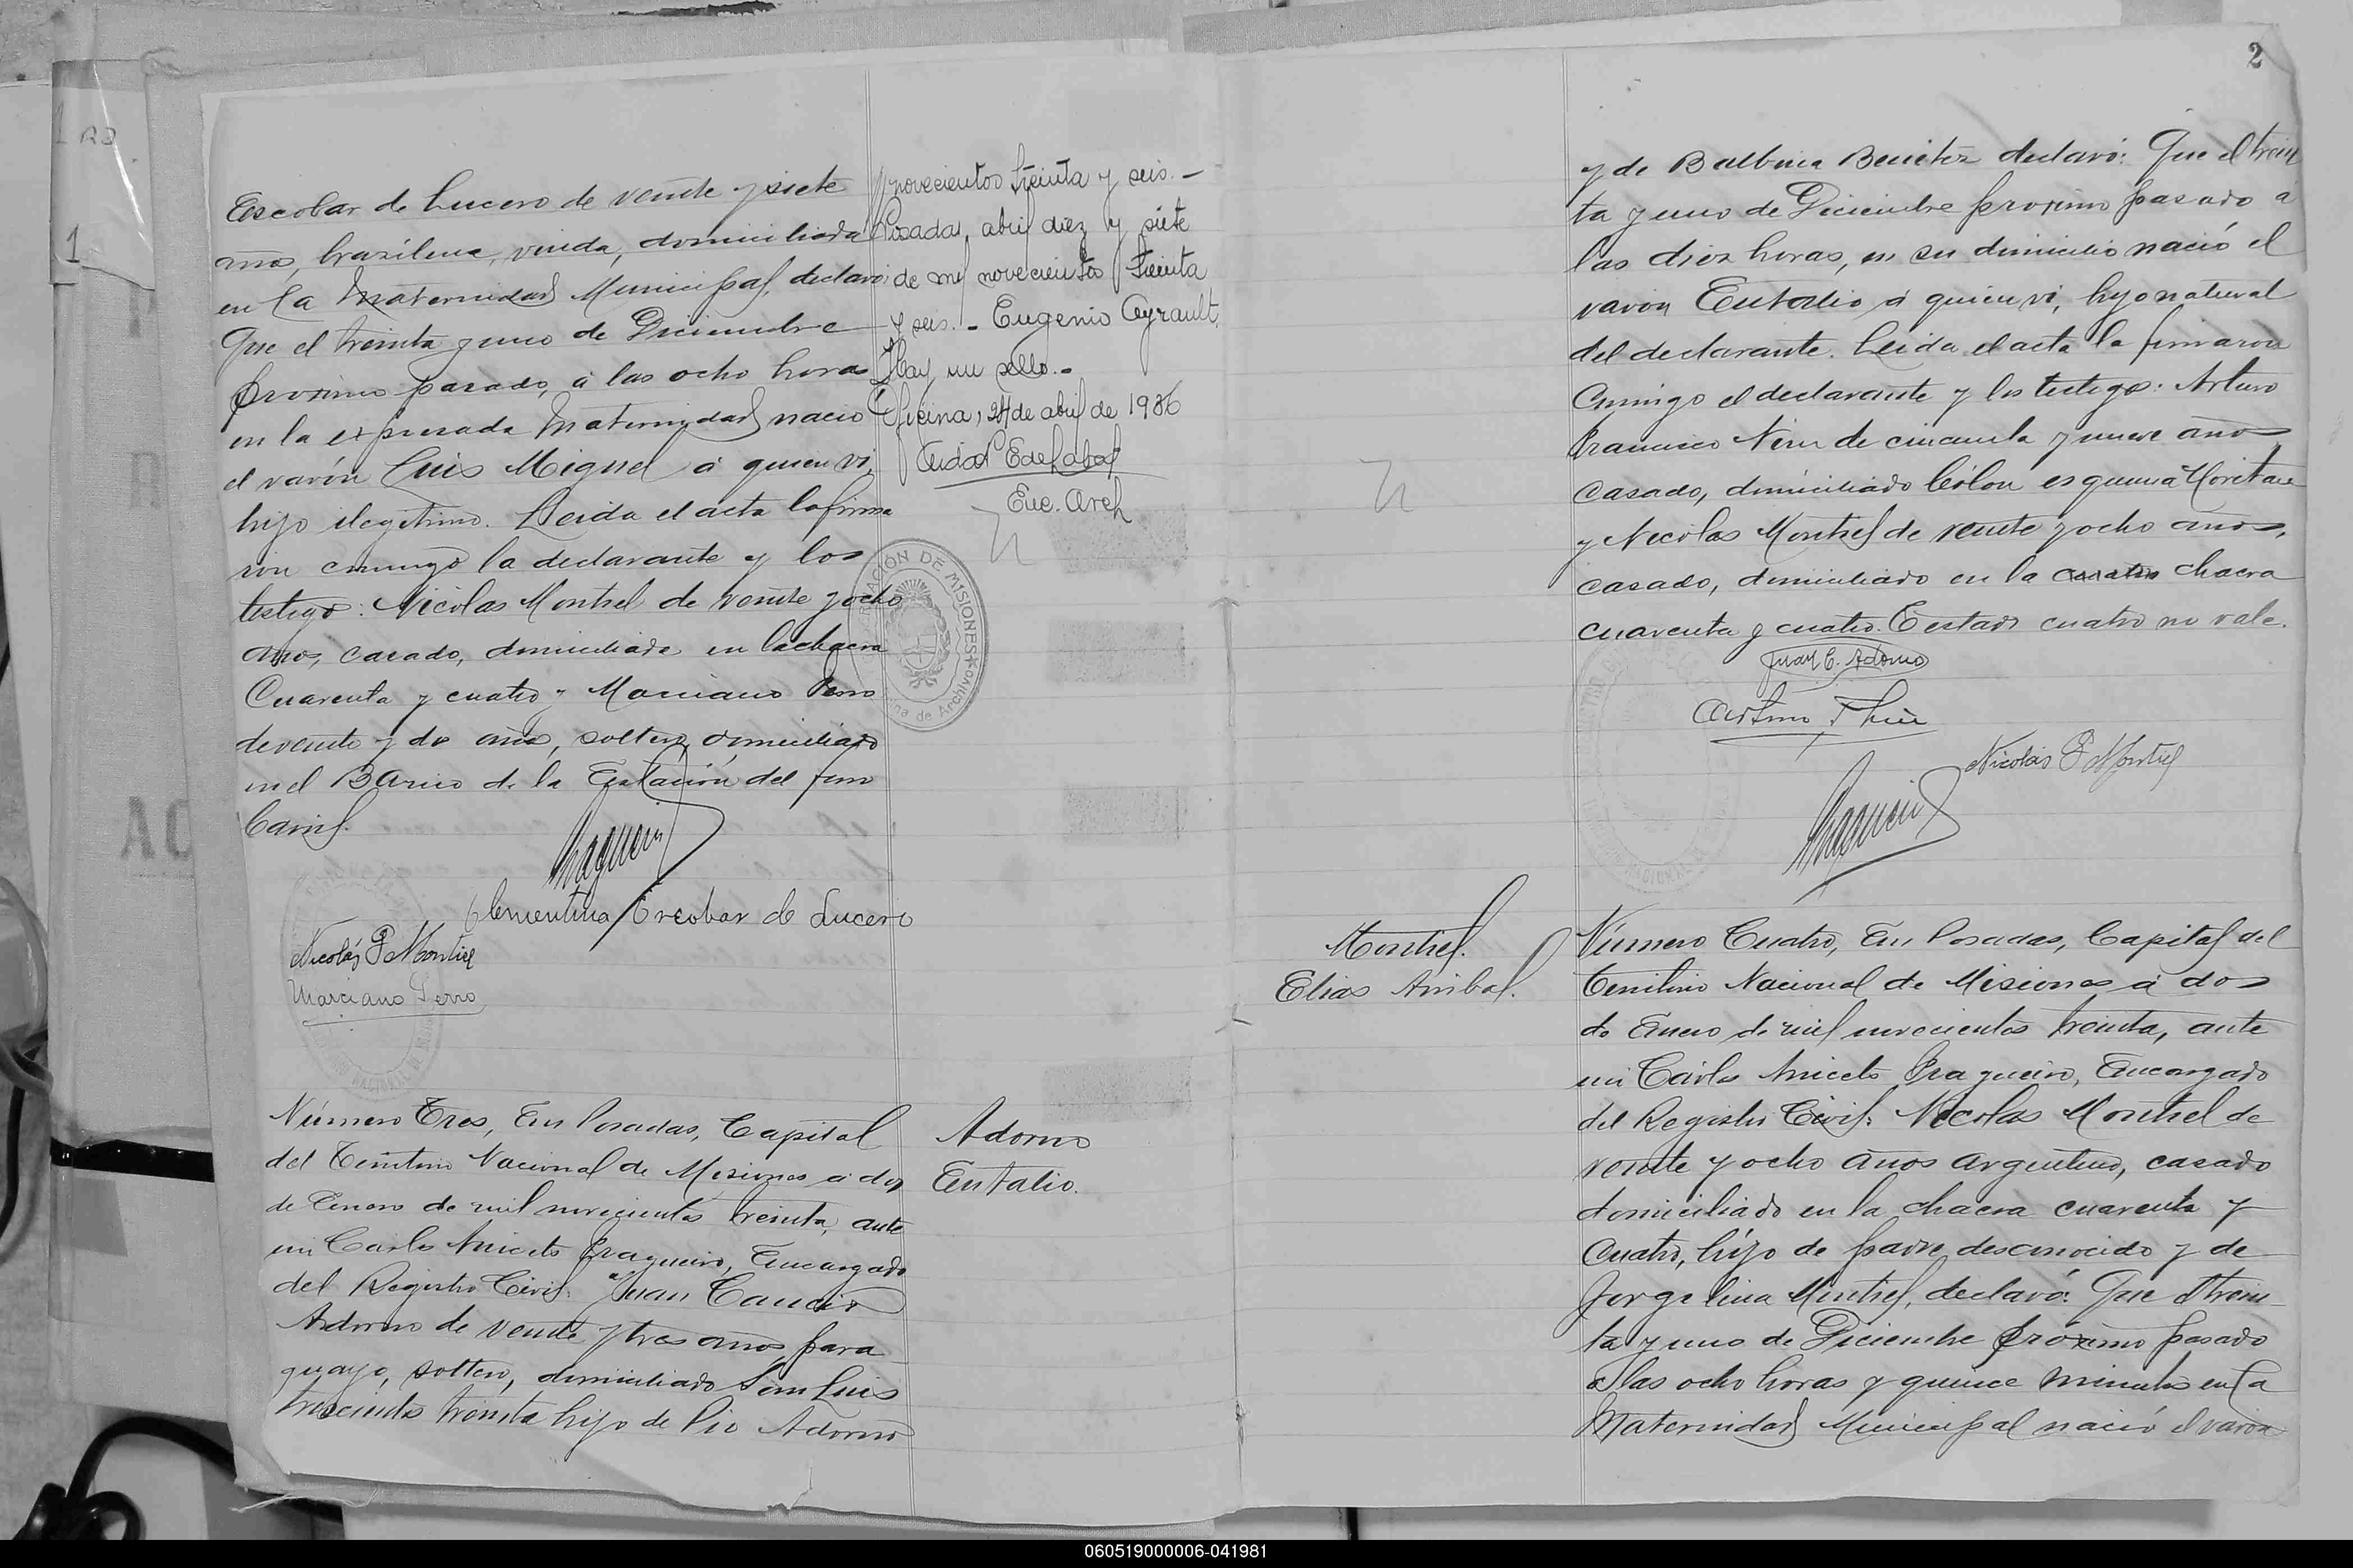 Escobar de Lucero de veinte y siete
años, brasilena, viuda, domiciliada
en la Maternidad Municipal, declaró:
Que el treinta y uno de Diciembre
próximo pasado, á las ocho horas
en la expresada Maternidad nació
el varón Luis Miguel á quien vi,
hijo ilegitimo. Leida el acta la firma
ron conmigo la declarante y los
testigos: Nicolas Montiel de veinte y ocho
años, casado, domiciliado en la chacra
Cuarenta y cuatro y Marciano Perro
de veinte y dos años, soltero, domiciliado
en el Barrio de la Estación del ferro
Carril.
Clementina Escobar de Lucero
Nicolás P Montiel
Marciano Perro
novecientos treinta y seis.-
Posadas, abril diez y siete
de mil novecientos treinta
y seis.- Eugenio Ayrault.
Hay un sello.-
Oficina, 24 de abril de 1936
Enc. Arch
ACIÓN DE MISIONES
ina de Archivos
Número Tres, En Posadas, Capital
del Territorio Nacional de Misiones á dos
de Enero de mil novecientos treinta, ante
mi Carlos Aniceto Fragueiro, Encargado
del Registro Civil: Juan Cancio
Adorno de veinte y tres años, para
guayo, soltero, domiciliado San Luis
trescientos treinta hijo de Pio Adorno
Adorno
Eutalio.
2
y de Balbina Benitez declaró: Que el trein
ta y uno de Diciembre próximo pasado á
las diez horas, en su domicilio nació el
varón Eutalio á quien vi, hijo natural
del declarante. Leida el acta la firmaron
Conmigo el declarante y los testigos: Arturo
Francisco de cincuenta y nueve años
casado, domiciliado Cólon esquina
y Nicolas Montiel de veinte y ocho años,
casado, domiciliado en la cuatro chacra
cuarenta y cuatro. Testado cuatro no vale.
Juan C. Adorno
Nicolás P Montiel
Montiel.
Elias Anibal.
Número Cuatro, En Posadas, Capital del
Territorio Nacional de Misiones á dos
de Enero de mil novecientos treinta, ante
mi Carlos Aniceto Fragueiro, Encargado
del Registro Civil: Nicolas Montiel de
veinte y ocho años argentino, casado
domiciliado en la chacra cuarenta y
cuatro, hijo de padre desconocido y de
Jorgelina Montiel, declaró: Que el trein
ta y uno de Diciembre próximo pasado
a las ocho horas y quince minutos en la
Maternidad Municipal nació el varón
060519000006-041981